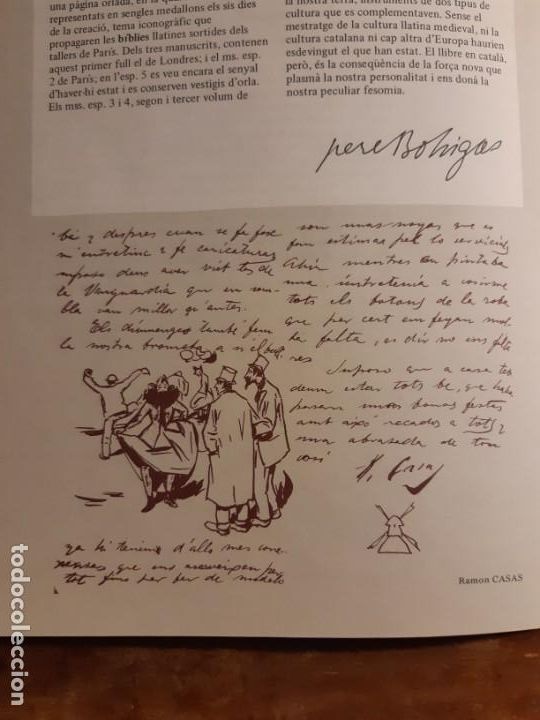 una pàgina orlada, en la qu
representats en sengles medallons els sis dies
de la creació, tema iconogràfic que
propagaren les bíblies llatines sortides dels
tallers de París. Dels tres manuscrits, contenen
aquest primer full el de Londres; i el ms. esp.
2 de París; en l'esp. 5 es veu encara el senyal
d'haver-hi estat i es conserven vestigis d'orla.
Els mss. esp. 3 i 4, segon i tercer volum de
la nostra terra, instruments de dos tipus de
cultura que es complementaven. Sense el
mestratge de la cultura llatina medieval, ni la
cultura catalana ni cap altra d'Europa haurien
esdevingut el que han estat. El llibre en català,
però, és la conseqüència de la força nova que
plasmà la nostra personalitat i ens donà la
nostra peculiar fesomia.
pere Bohigas
bé y despres cuan se fe fose
m'entretinc a fe caricatures
suposo deus aver vist tes de
la Vanguardia que en
bla van miller qu'antes.
Els diumenges també fem
la nostra a
ya hi tenim d'alls mes
que ens serveixen per
tot fins per fer de models
som unas noyas que es
fan estimar pel lo servicials
Ahir mentres en pintaba
una, s'entretenia a cosirme
tots els botons de la roba
que per cert em feyan mol
ta falta, es dir no ens falta
res
Suposo que a casa to
deum estar tots be, que
pasam unas bonas festas
amb aixó recados a tots y
una abrasada de ton
cosí
R. Casas
Ramon CASAS
todocoleccion